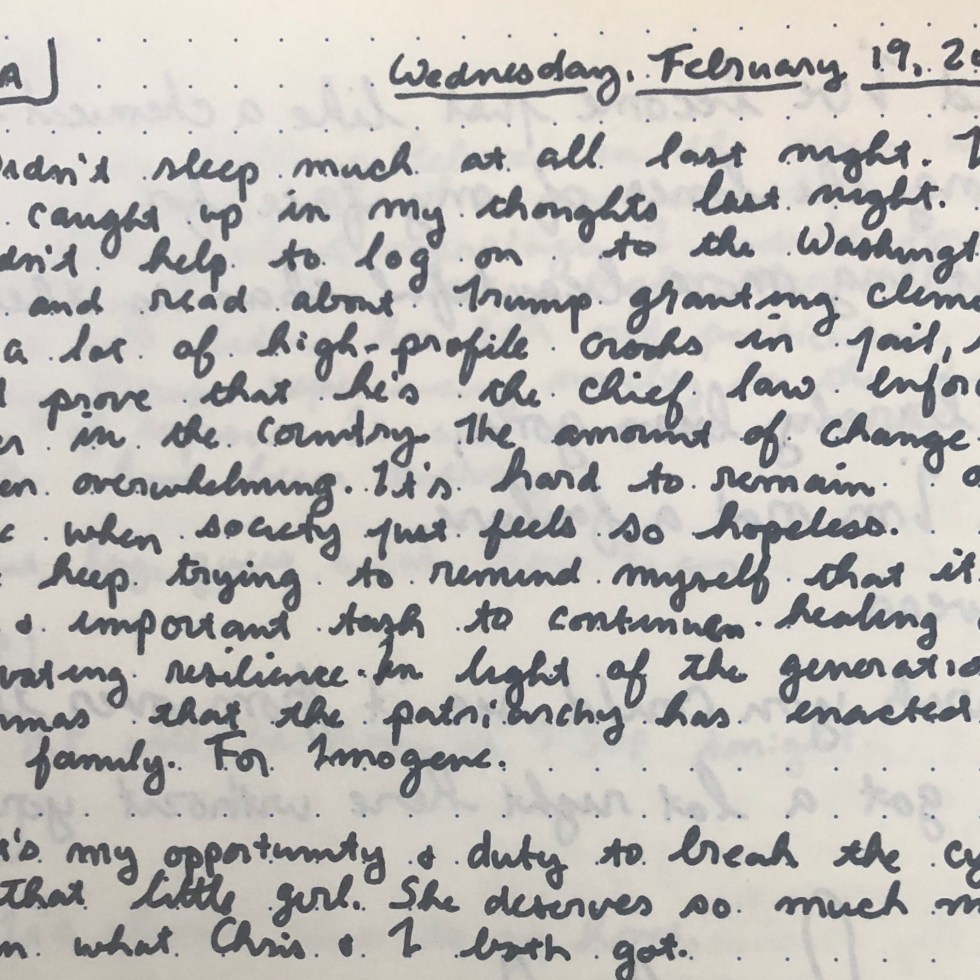 A Wednesday, February 19, 20
idn't sleep much at all last night. I
caught up in my thoughts last night.
dn't help to log on to the Washingt
and read about Trump granting clem
a lot of high-profile crooks in jail,
prove that he's the chief law enfor
er in the country. The amount of change
en overwhelming. It's hard to remain o
c when society just feels so hopeless.
keep trying to remind myself that it
& important task to continuen healing
vating resilience in light of the generatio
umas that the patriarchy has enacted
family. For Imogene.
t's my opportunity & duty to break the cy
that little girl. She deserves so much m
n what Chris & I both got.